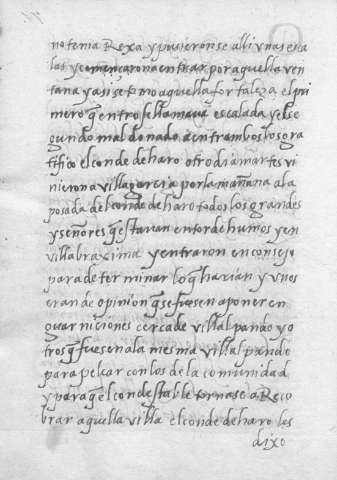 no tenia Rexa y pusieronse alli vnas esca
las y començaron a entrar por aquella ven
tana y assi se tomo aquella fortaleza el pri
mero q̃ entro se llamaua escalada y el se
gundo maldonado a entrambos los gra
tifico el conde de haro otro dia martes vi
nieron a villagarcia por la mañana a la
posada del conde de haro todos los grandes
y señores q̃ estauan en tordehumos y en
villabraxima y entraron en consejo
para determinar lo q̃ harian y vnos
eran de opinion q̃ se fuesen a poner en
guarniciones cerca de villalpando y o
tros q̃ fuesen a la mesma villalpando
para pelear con los de la comunidad
y para q̃ el condestable tornase a Reco
brar aquella villa el conde de haro les
dixo